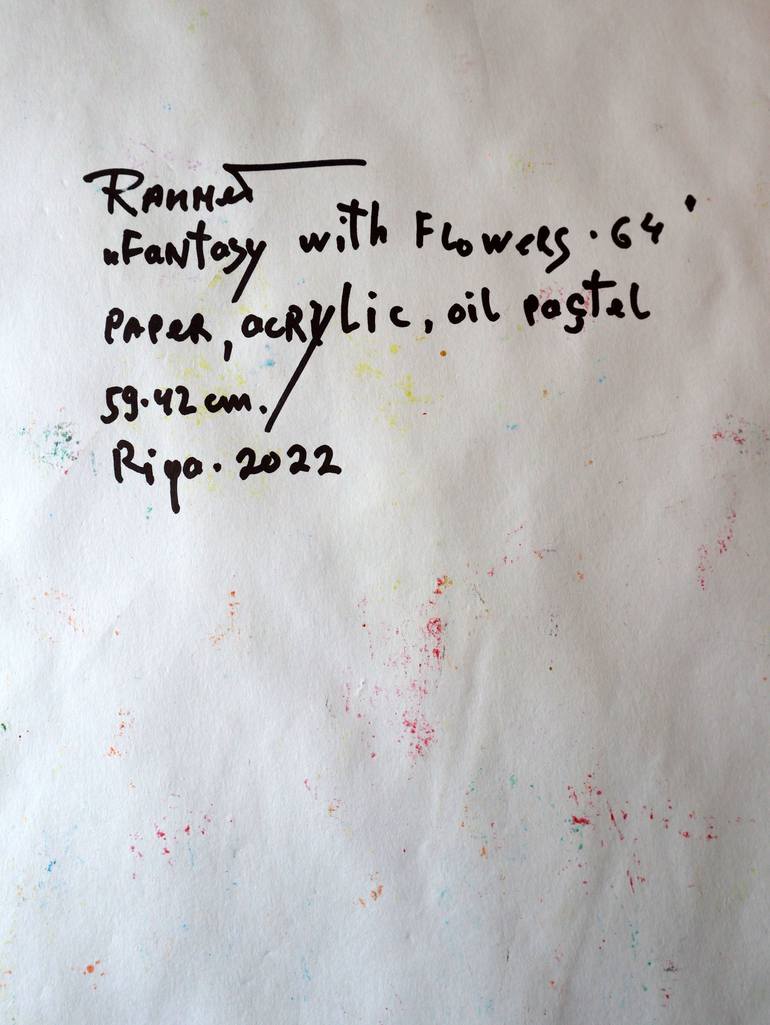 Rahmet
„Fantasy with Flowers . 64'
paper, acrylic, oil pastel
59.42 cm.
Riga. 2022